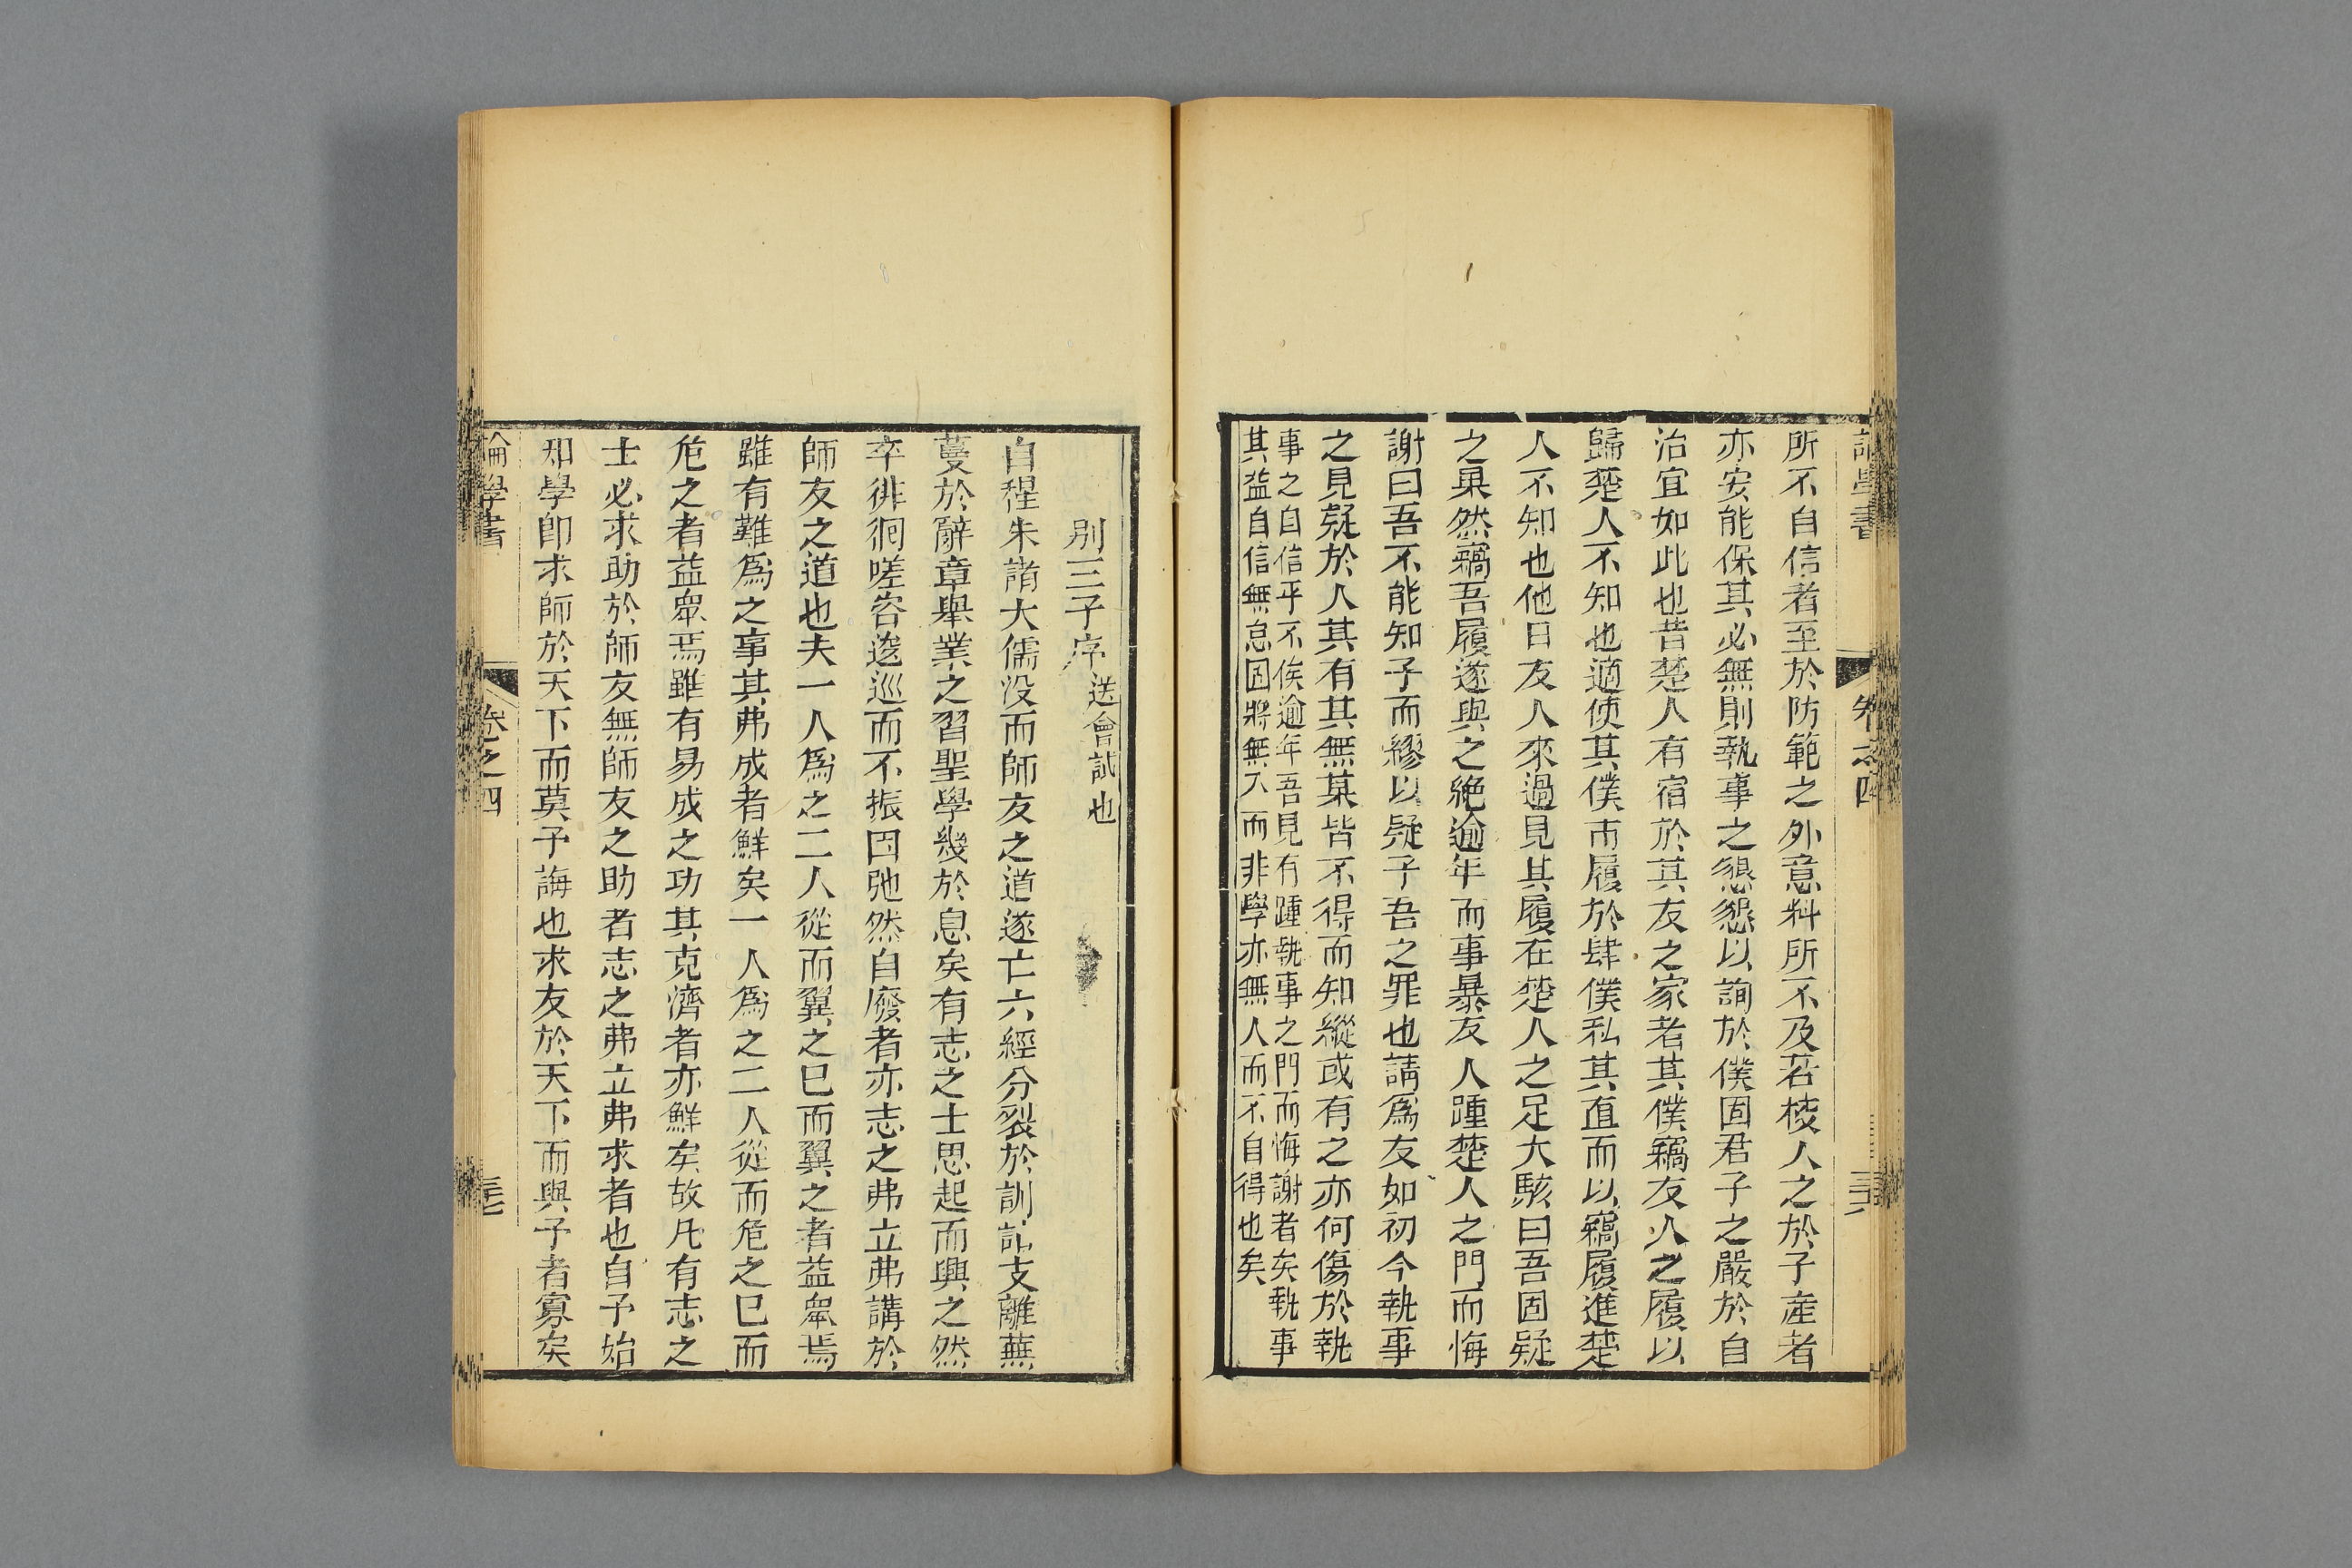 所不自信者至於防範之外意料所不及若校人之於子產者
亦安能保其必無則執事之懇懇以詢於僕固君子之嚴於自
治宜如此也昔楚人有宿於其友之家者其僕竊友人之履以
歸楚人不知也適使其僕市履於肆僕私其直而以竊履進楚
人不知也他日友人來過見其履在楚人之足大駭曰吾固疑
之果然竊吾履遂與之絶逾年而事暴友人踵楚人之門而悔
謝曰吾不能知子而繆以疑子吾之罪也請爲友如初今執事
之見疑於人其有其無某皆不得而知縱或有之亦何傷於執
事之自信乎不俟逾年吾見有踵執事之門而悔謝者矣執事
其益自信無怠固將無入而非學亦無人而不自得也矣
別三子序送會試也
自程朱諸大儒没而師友之道遂亡六經分裂於訓詁支離蕪
蔓於辭章舉業之習聖學幾於息矣有志之士思起而興之然
卒徘徊嗟咨逡巡而不振因弛然自廢者亦志之弗立弗講於
師友之道也夫一人爲之二人從而翼之已而翼之者益衆焉
雖有難爲之事其弗成者鮮矣一人爲之二人從而危之已而
危之者益衆焉雖有易成之功其克濟者亦鮮矣故凡有志之
士必求助於師友無師友之助者志之弗立弗求者也自予始
知學即求師於天下而莫予誨也求友於天下而與予者寡矣
論學書
卷之四